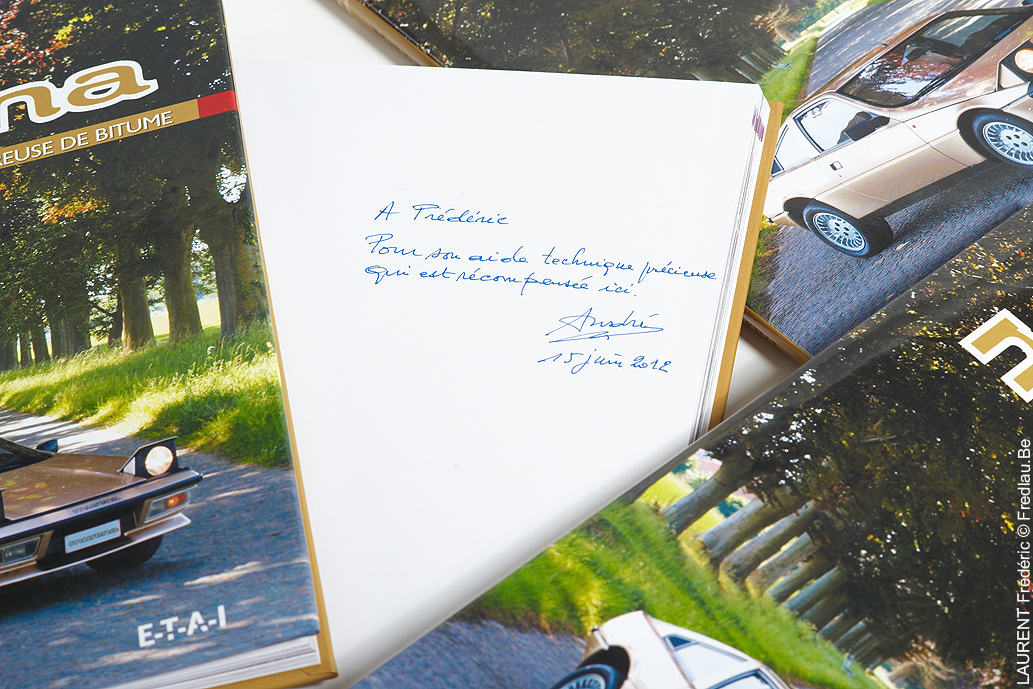 na
REUSE DE BITUME
A Frédéric
Pour son aide technique précieuse
qui est récompensée ici.
André
15 juin 2012
murena
E-T-A-I
LAURENT Frédéric © Fredlau.Be